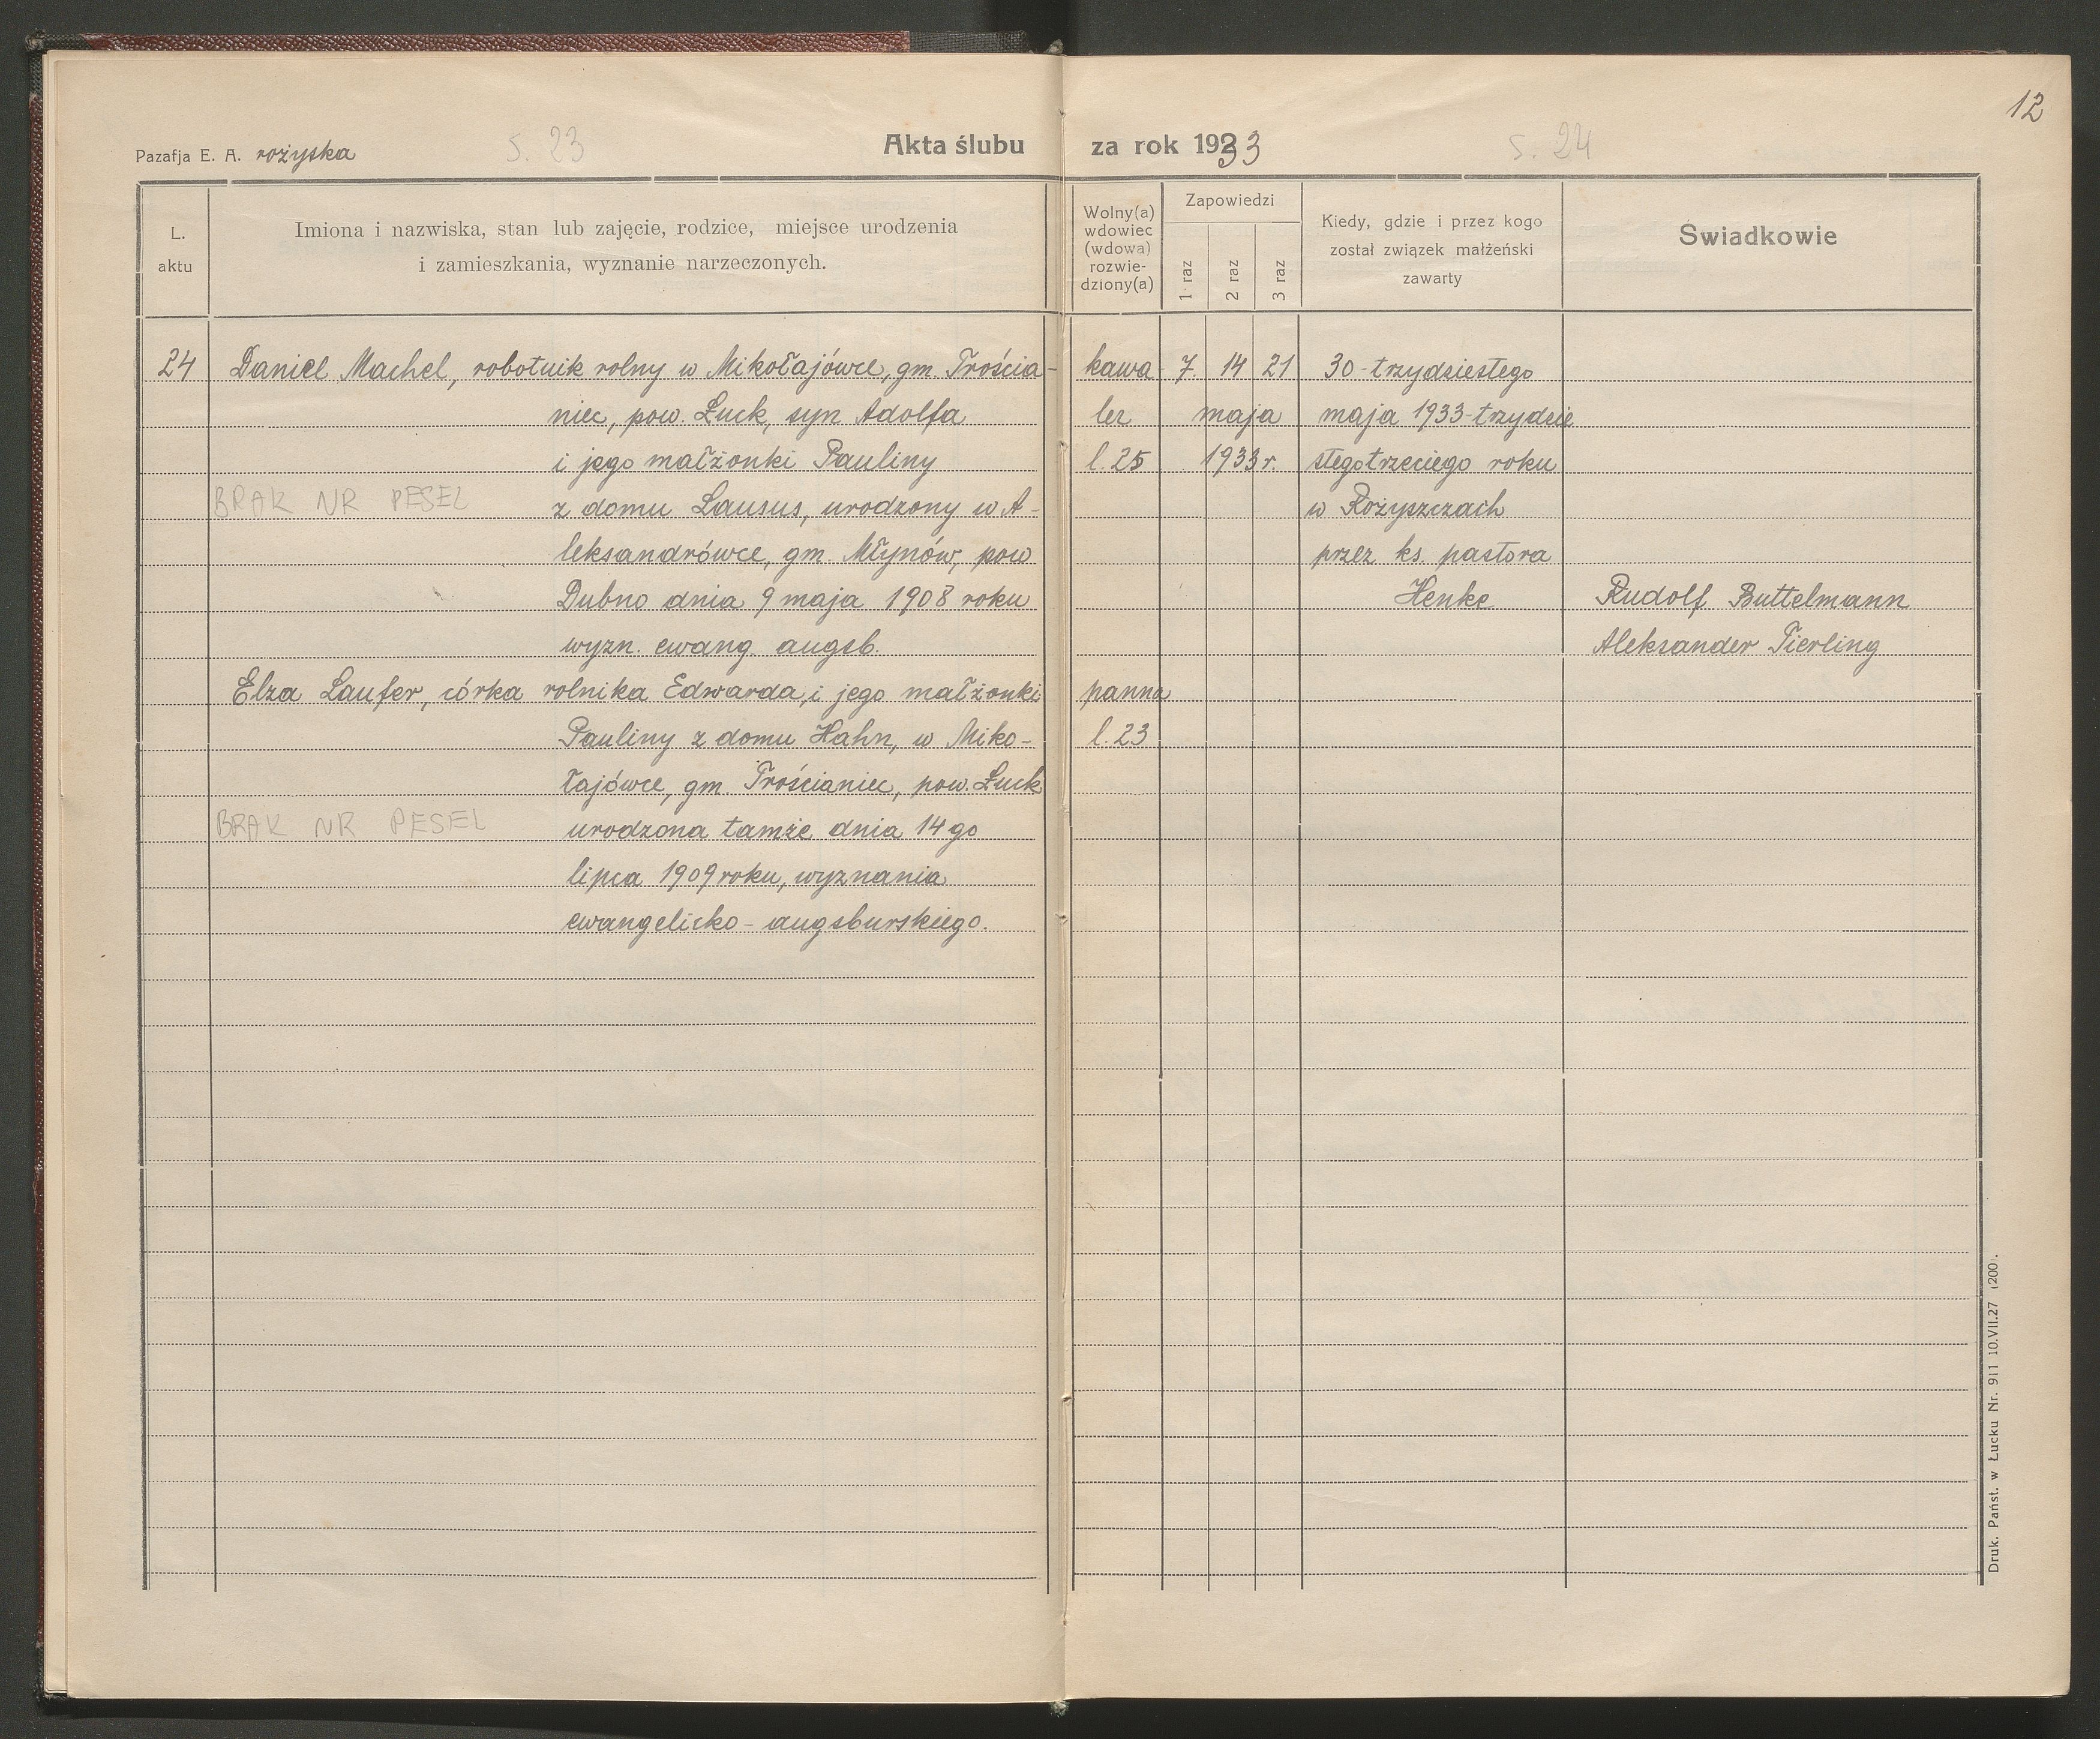 12
Pazafja E. A. rożyska
s. 23
Akta ślubu za rok 1933
s. 24
L. aktu
Imiona i nazwiska, stan lub zajęcie, rodzice, miejsce urodzenia
i zamieszkania, wyznanie narzeczonych.
Wolny(a)
wdowiec
(wdowa)
rozwie-
dziony(a)
Zapowiedzi
1 raz
2 raz
3 raz
Kiedy, gdzie i przez kogo
został związek małżeński
zawarty
Świadkowie
24 Daniel Machel, robotnik rolny w Mikołajówce, gm. Trościa-
niec, pow. Łuck, syn Adolfa
i jego małżonki Pauliny
BRAK NR PESEL
z domu Lausus, urodzony w A-
leksandrówce, gm. Młynów, pow
Dubno dnia 9 maja 1908 roku
wyzn. ewang augsb.
Elza Laufer, córka rolnika Edwarda, i jego małżonki
Pauliny z domu Hahn, w Miko-
łajówce, gm. Trościaniec, pow. Łuck
BRAK NR PESEL
urodzona tamże dnia 14 go
lipca 1909 roku, wyznania
ewangelicko-augsburskiego.
kawa
ler
l. 25
panna
l. 23
7. 14 21
maja
1933 r.
30-trzydziestego
maja 1933-trzydzie
stegotrzeciego roku
w Rożyszczach
przez ks. pastora
Henke
Rudolf Buttelmann
Aleksander Tierling
Druk. Państ. w Łucku Nr. 911 10.VII.27 (200).